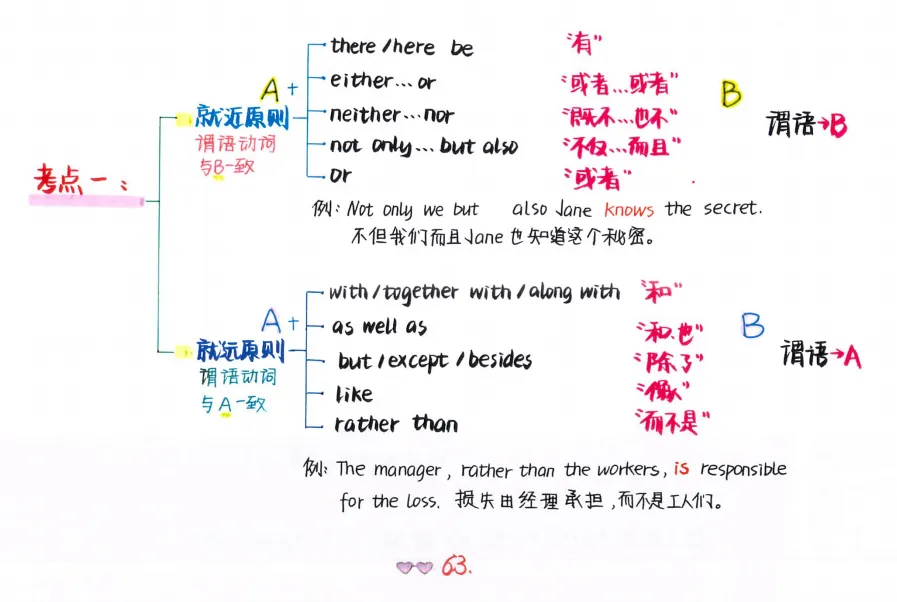 考点一：
就近原则
谓语动词
与B一致
A +
there / here be "有"
either…or "或者…或者"
neither…nor "既不…也不"
not only…but also "不仅…而且"
or "或者"
B
谓语→B
例: Not only we but also Jane knows the secret.
不但我们而且Jane也知道这个秘密。
就远原则
谓语动词
与A一致
A +
with / together with / along with "和"
as well as "和,也"
but / except / besides "除了"
like "像"
rather than "而不是"
B
谓语→A
例: The manager, rather than the workers, is responsible
for the loss. 损失由经理承担,而不是工人们。
63.